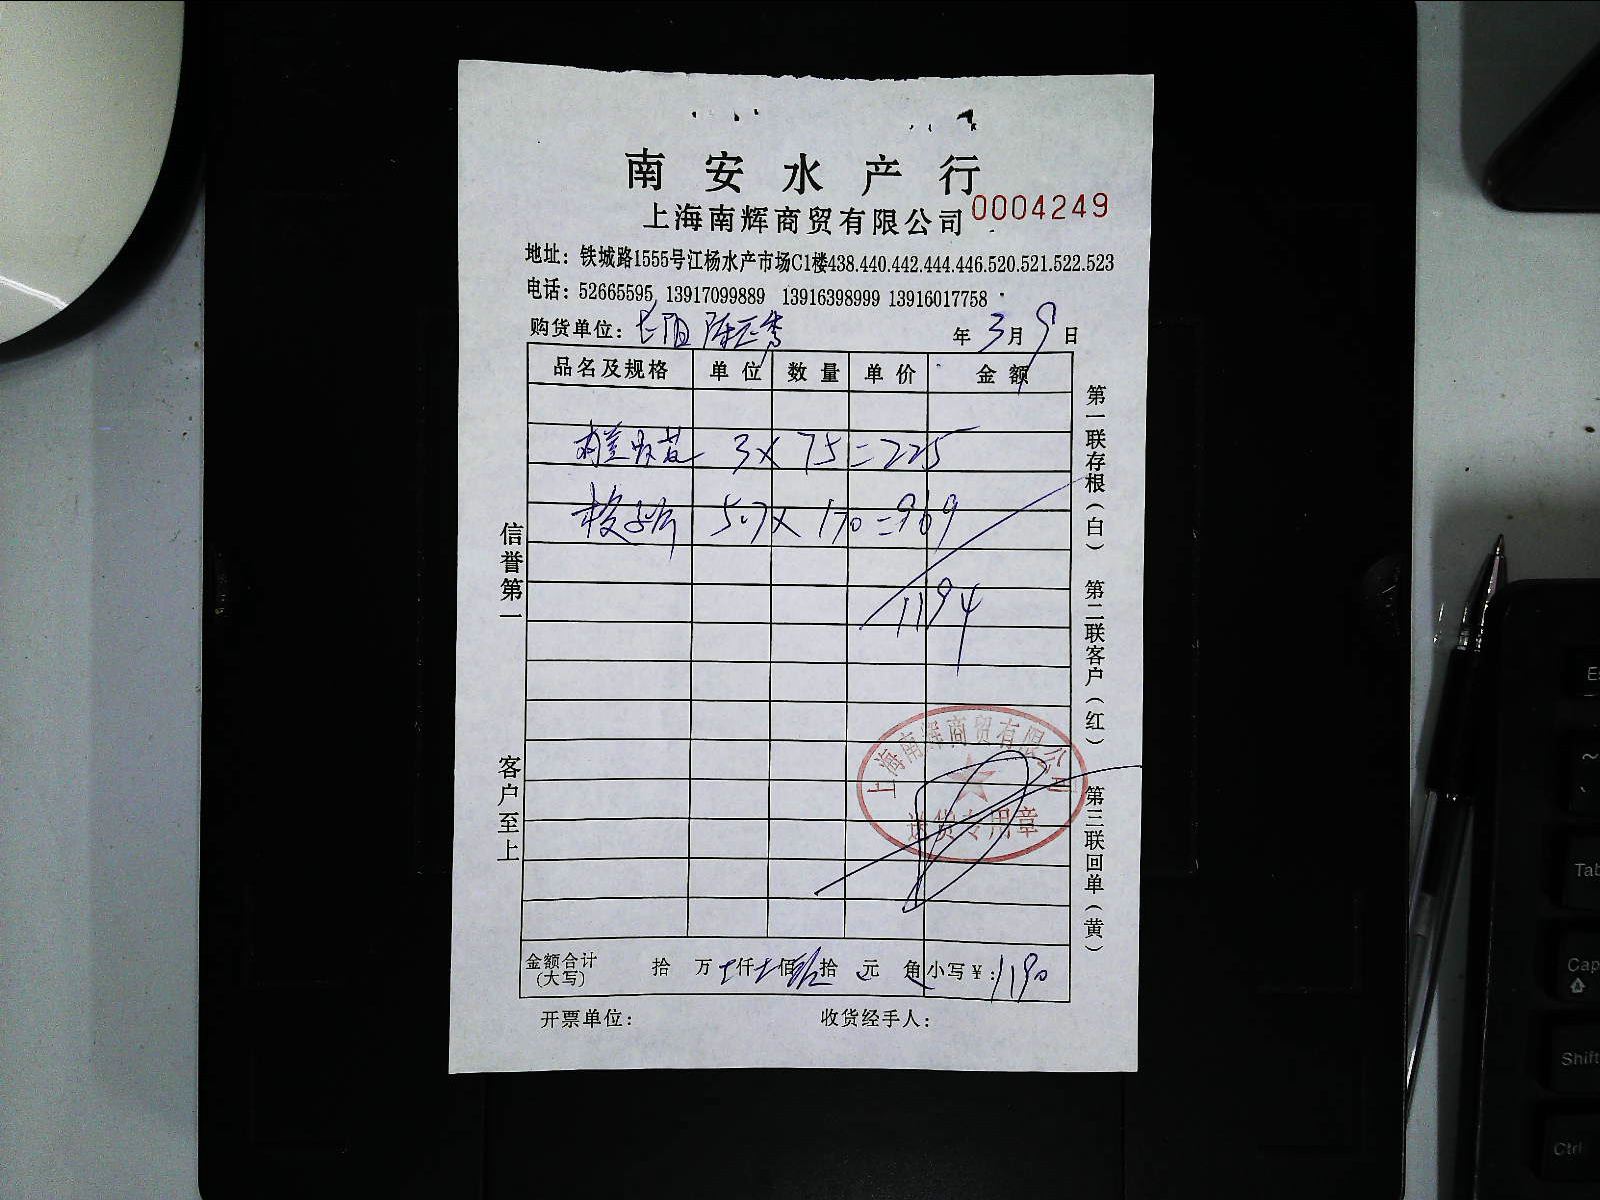 南安水产行
上海南辉商贸有限公司 0004249
地址：铁城路1555号江杨水产市场C1楼438.440.442.444.446.520.521.522.523
电话：52665595 13917099889 13916398999 13916017758
购货单位：
年 3 月 9 日
品名及规格 单位 数量 单价 金额
3 × 75 = 225
5.7 × 170 = 969
1194
上海南辉商贸有限公司
送货专用章
金额合计(大写) 拾 万 仟 佰 拾 元 角 小写￥：1190
开票单位： 收货经手人：
信誉第一 客户至上
第一联存根(白) 第二联客户(红) 第三联回单(黄)
Tab
Cap
Shift
Ctrl